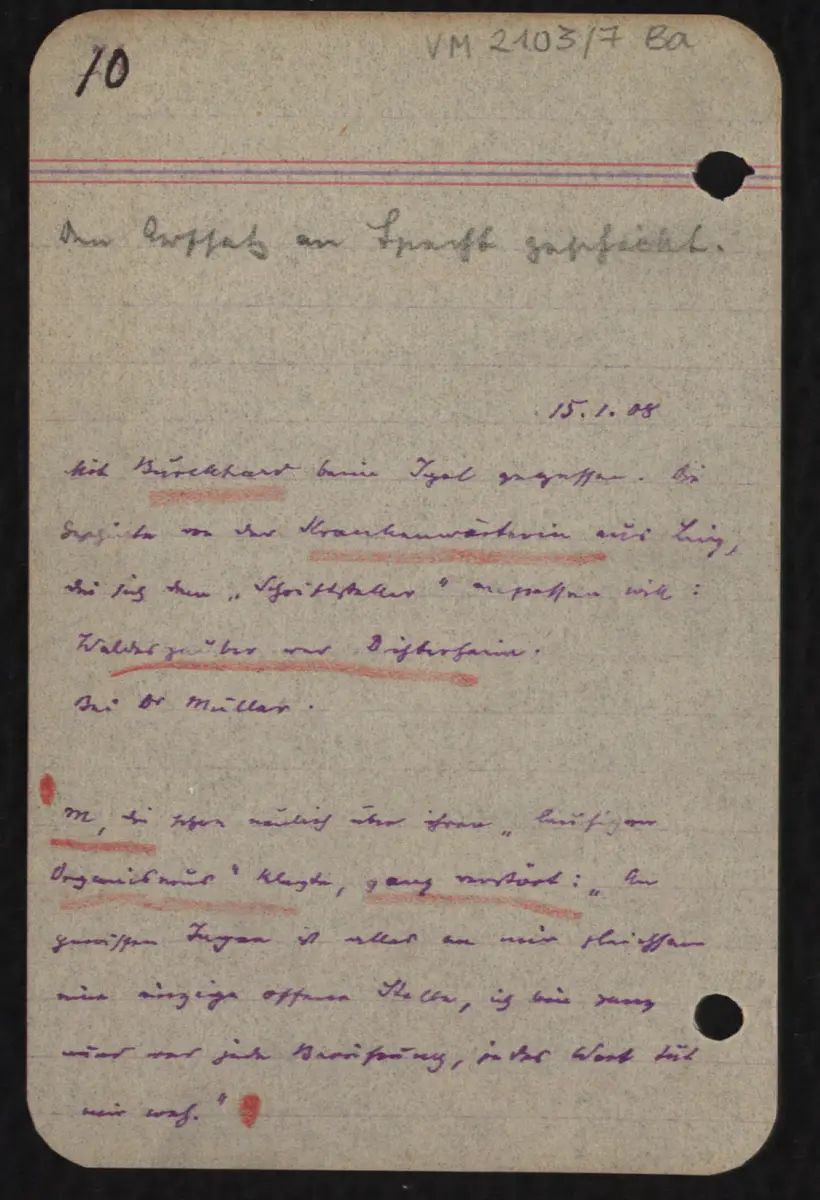 10
VM 2103/7 Ba
Den Aufsatz an Specht geschickt.
15.1.08
Mit Burckhard beim Igel gegessen. Die
Geschichte von der Krankenwärterin aus Linz,
die sich dem „Schriftsteller" anpassen will:
Waldeszauber Dichterheim!
Bei Dr Müller.
M, die schon neulich über ihren „
Organismus" klagte, ganz verstört: „An
gewissen Tagen ist alles an mir gleichsam
eine einzige offene Stelle, ich bin ganz
wund jede Berührung, jedes Wort tut
mir weh."